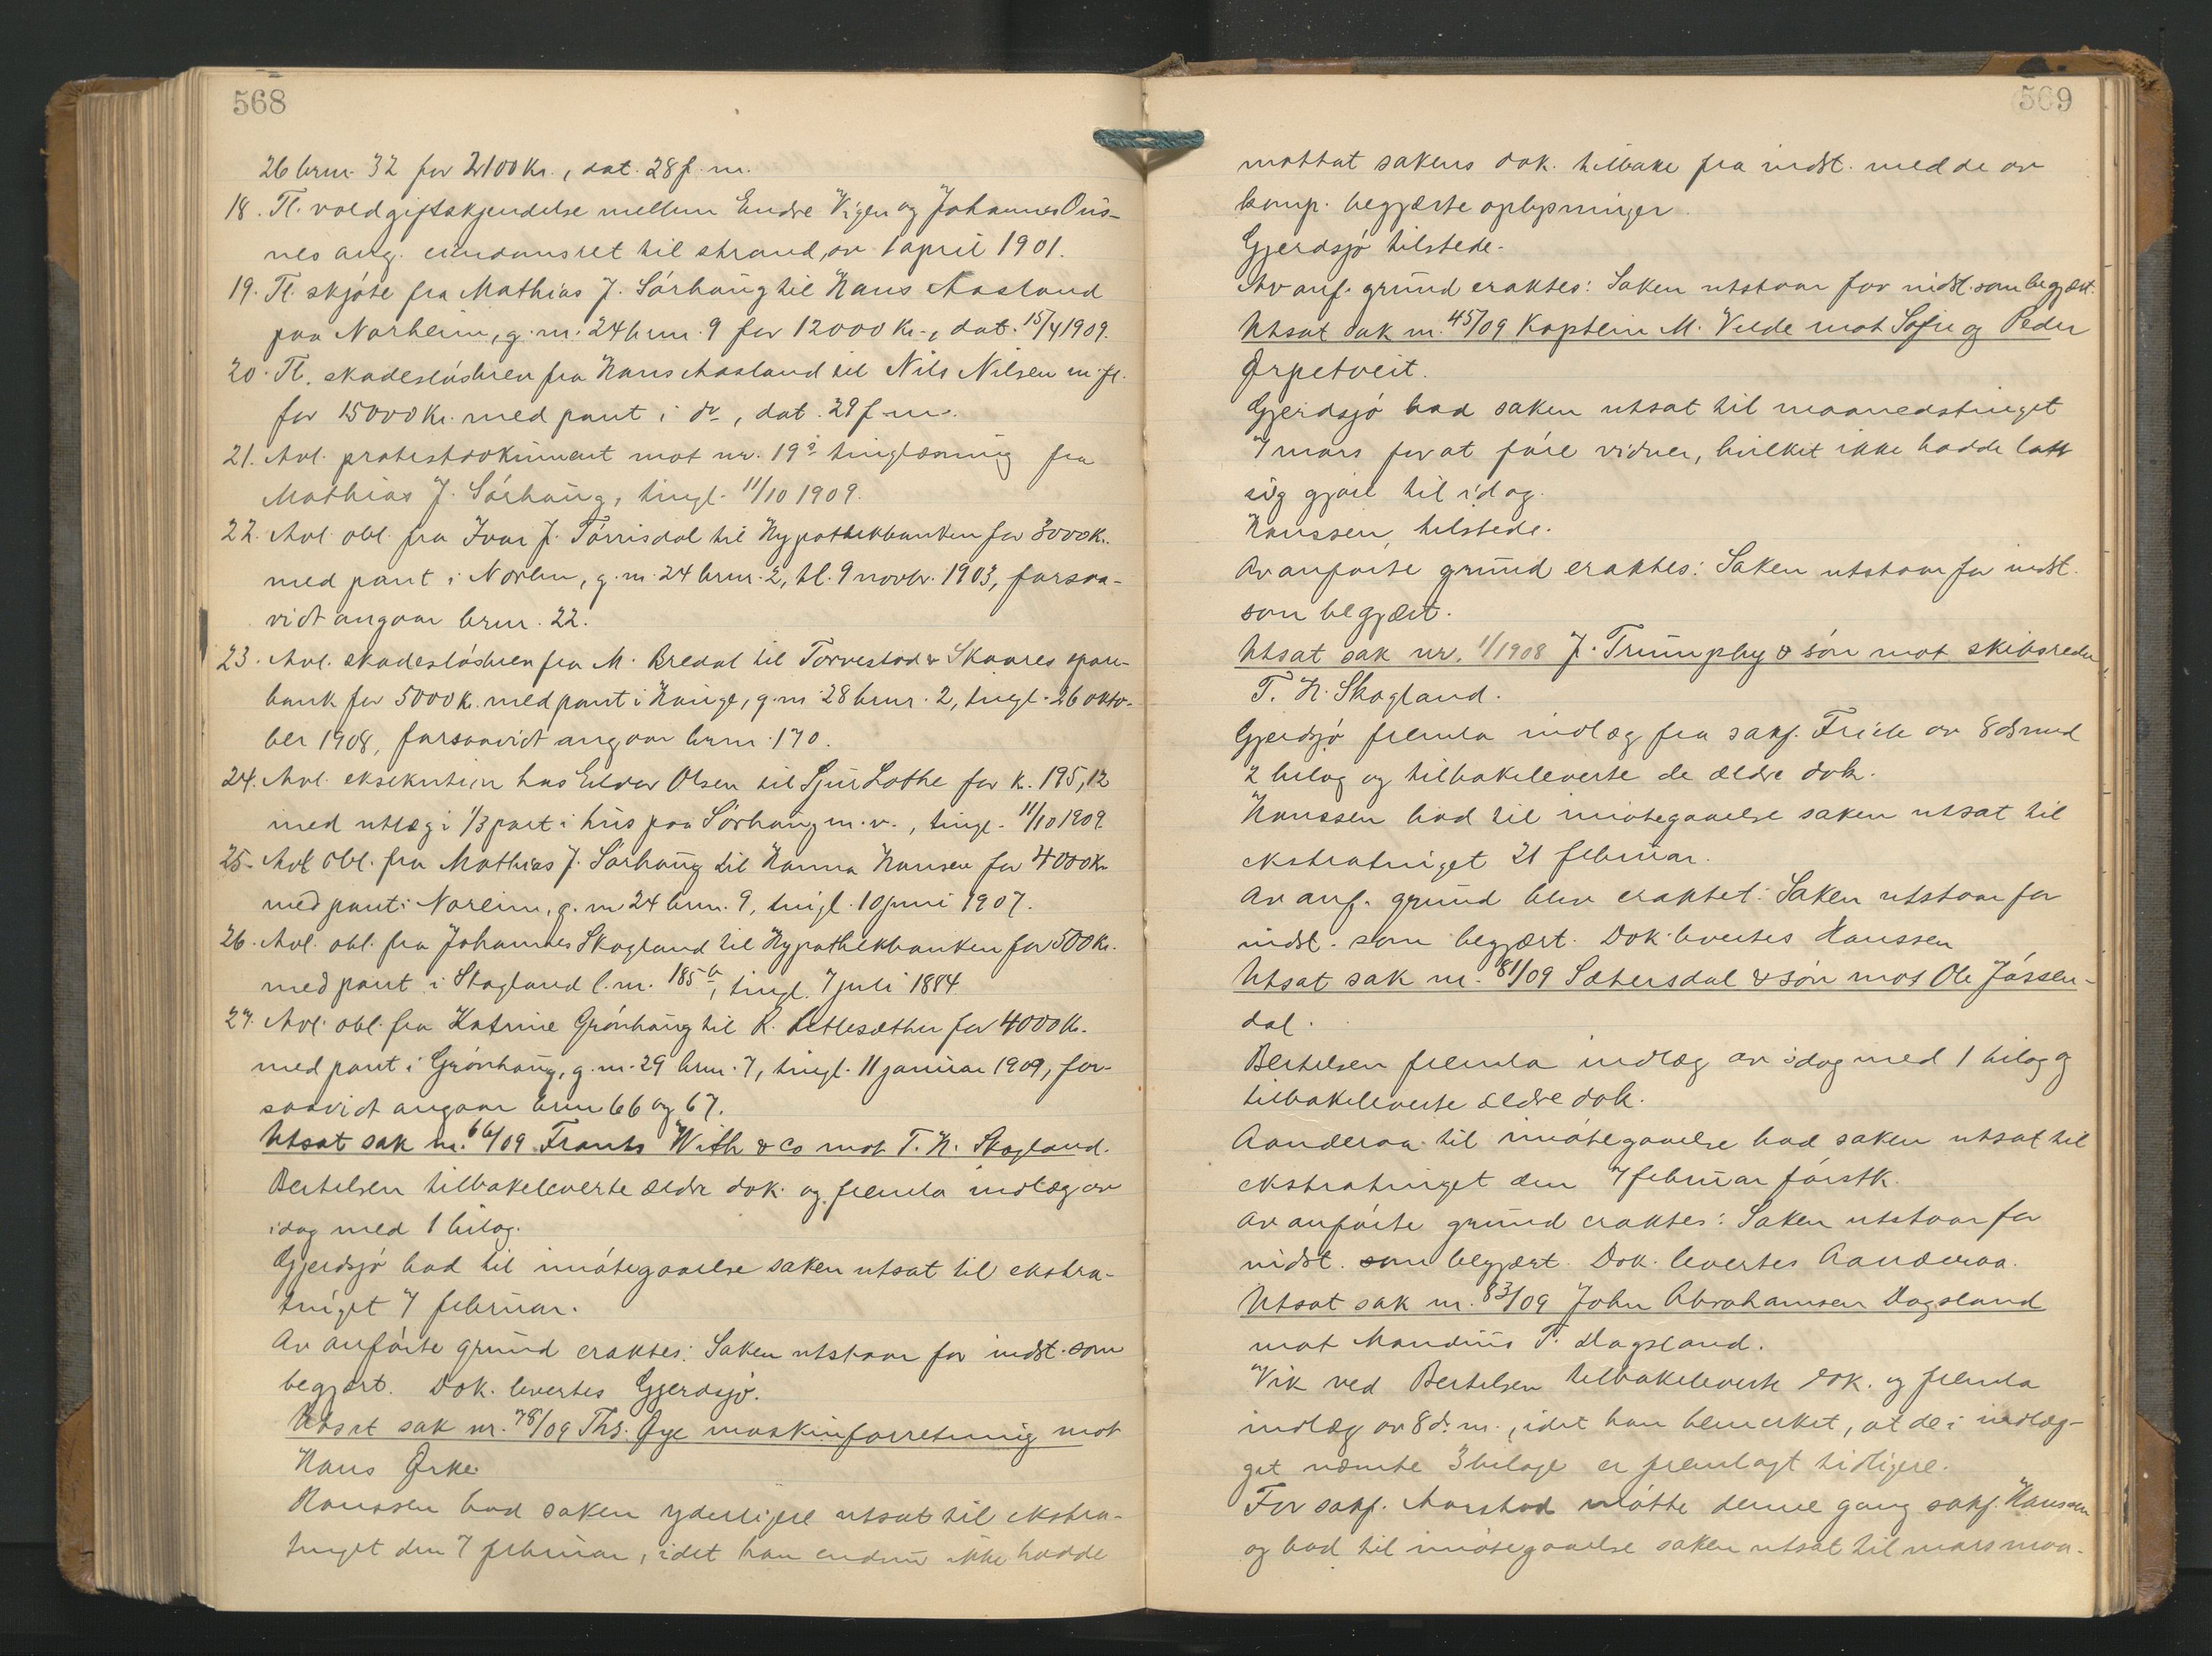 568
26 brnr. 32 for 2100 Kr., dat. 28 f. m.
18. Tl. voldgiftskjendelse mellem Endre Vigen og Johannes Ons-
nes ang. eiendomsret til strand, av 1 april 1901.
19. Tl. skjøte fra Mathias J. Sørhaug til Hans Aasland
paa Norheim, g. nr. 24 brnr. 9 for 12000 Kr., dat. 15/4 1909.
20. Tl. skadesløsbrev fra Hans Aasland til Nils Nilsen m. fl.
for 15000 Kr. med pant i do, dat. 29 f. m.
21. Avl. protestdokument mot nr. 19s tinglæsning fra
Mathias J. Sørhaug, tingl. 11/10 1909.
22. Avl. obl. fra Ivar J. Tørrisdal til Hypothekbanken for 3000 K.
med pant i Norheim, g. nr. 24 brnr. 2, tl. 9 novbr. 1903, forsaa-
vidt angaar brnr. 22.
23. Avl. skadesløsbrev fra M. Bredal til Torvestad & Skaares spare-
bank for 5000 K. med pant i Hauge, g. nr. 28 brnr. 2, tingl. 26 okto-
ber 1908, forsaavidt angaar brnr. 170.
24. Avl. eksekution hos Eldar Olsen til Sjur Lothe for K. 195,12
med utlæg i 1/3 part i hus paa Sørhaug m. v., tingl. 11/10 1909
25. Avl. obl. fra Mathias J. Sørhaug til Hanna Hansen for 4000 Kr
med pant i Noreim, g. nr 24 brnr. 9, tingl. 10 juni 1907.
26. Avl. obl. fra Johannes Skogland til Hypothekbanken for 500 Kr.
med pant i Skogland l. nr. 185 b, tingl. 7 juli 1884
27. Avl. obl. fra Katrine Grønhaug til R. Litlesæther for 4000 Kr.
med pant i Grønhaug, g. nr. 29 brnr. 7, tingl. 11 januar 1909, for-
saavidt angaar brnr 66 og 67.
Utsat sak nr. 66/09 Frants With & Co mot T. H. Skogland.
Bertelsen tilbakeleverte ældre dok. og fremla indlæg av
idag med 1 bilag.
Gjerdsjø bad til imøtegaaelse saken utsat til ekstra-
tinget 7 februar.
Av anførte grund eragtes: Saken utstaar for indst. som
begjært. Dok. levertes Gjerdsjø.
Utsat sak nr. 78/09 Ths. Øye maskinforretning mot
Hans Ørke
Hanssen bad saken yderligere utsat til ekstra-
tinget den 7 februar, idet han endnu ikke hadde
569
mottat sakens dok. tilbake fra indst. med de av
komp. begjærte oplysninger.
Gjerdsjø tilstede.
Av anf. grund eraktes: Saken utstaar for indst. som begjært.
Utsat sak nr. 45/09 Kaptein M. Velde mot Sofie og Peder
Ørpetveit.
Gjerdsjø bad saken utsat til maanedstinget
7 mars for at føre vidner, hvilket ikke hadde latt
sig gjøre til idag.
Hanssen, tilstede.
Av anførte grund eraktes: Saken utstaar for indst.
som begjært.
Utsat sak nr. 1/1908 J. Triumphy & søn mot skibsreder
T. H. Skogland.
Gjerdsjø fremla indlæg fra sakf. Friele av 8 ds med
2 bilag og tilbakeleverte de ældre dok.
Hanssen bad til imøtegaaelse saken utsat til
ekstratinget 21 februar.
Av anf. grund blev eraktet: Saken utstaar for
indst. som begjært. Dok. levertes Hanssen
Utsat sak nr. 81/09 Sætersdal & søn mot Ole Jøssen-
dal.
Bertelsen fremla indlæg av idag med 1 bilag og
tilbakeleverte ældre dok.
Aanderaa til imøtegaaelse bad saken utsat til
ekstratinget den 7 februar førstk.
Av anførte grund eraktes: Saken utstaar for
indst. som begjært. Dok. levertes Aanderaa.
Utsat sak nr. 83/09 John Abrahamsen Dagsland
mot Mandius T. Dagsland.
Vik ved Bertelsen tilbakeleverte dok. og fremla
indlæg av 8 d. m., idet han bemerket, at de i indlæg-
get nævnte 3 bilage er fremlagt tidligere.
For sakf. Aarstad møtte denne gang sakf. Hanssen
og bad til imøtegaaelse saken utsat til mars maa-